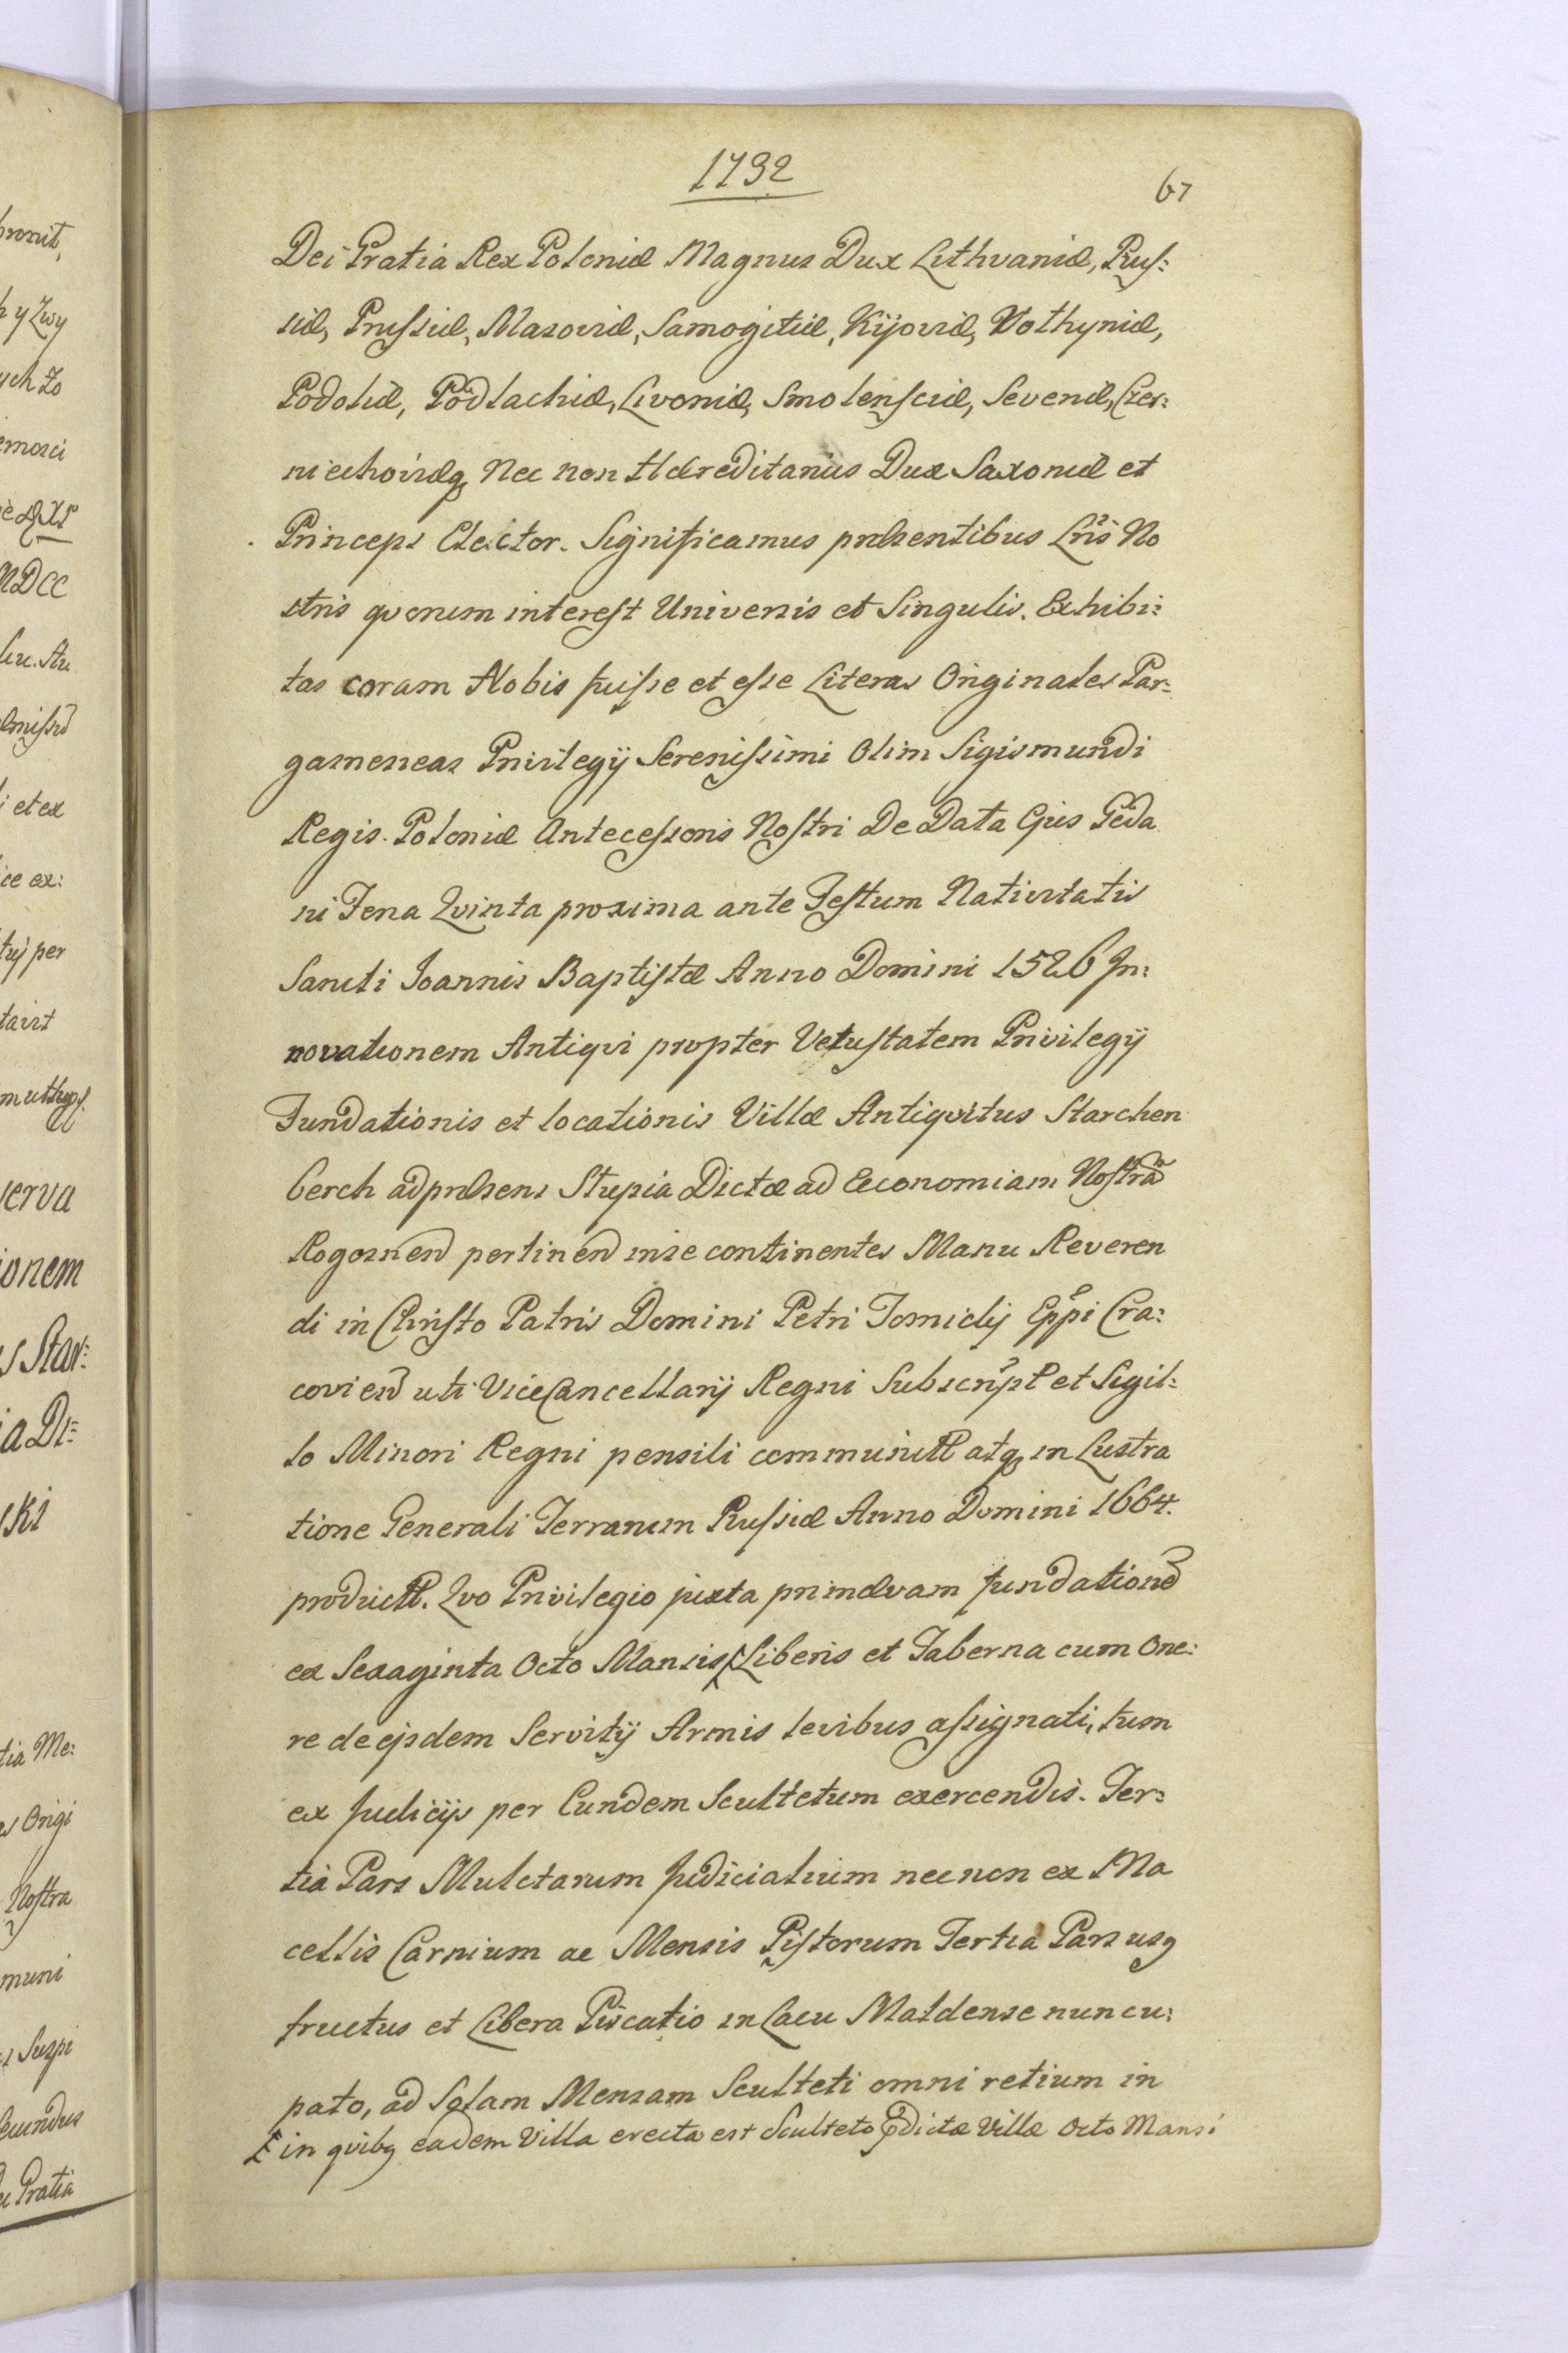 1732
67
Dei Gratia Rex Poloniæ Magnus Dux Lithvaniæ, Rus:
siæ, Prussiæ, Masoviæ, Samogitiæ, Kijoviæ, Volhyniæ,
Podoliæ, Podlachiæ, Livoniæ, Smolensciæ, Severiæ, Czer:
niechoviæq Nec non Hæreditarius Dux Saxoniæ et
Princeps Elector. Significamus præsentibus Lris No
stris qvorum interest Universis et Singulis. Exhibi:
tas coram Nobis fuisse et esse Literas Originales Par:
gameneas Privilegij Serenissimi Olim Sigismundi
Regis Poloniæ Antecessoris Nostri De Data Ejus Geda
ni Feria Qvinta proxima ante Festum Nativitatis
Sancti Joannis Baptistæ Anno Domini 1526 In:
novationem Antiqvi propter Vetustatem Privilegij
Fundationis et locationis Villæ Antiqvitus Starchen
berch ad præsens Stupia Dictæ ad Œconomiam Nostrã
Rogoznen pertinen in se continentes Manu Reveren
di in Christo Patris Domini Petri Tomicij Eppi Cra:
covien uti ViceCancellarij Regni Subscript et Sigil:
lo Minori Regni pensili communitt atq in Lustra
tione Generali Terrarum Prussiæ Anno Domini 1664.
productt. Qvo Privilegio juxta primævam fundatione
ex Sexaginta Octo Mansis Liberis et Taberna cum One:
re de ejsdem Servitij Armis levibus assignati, tum
ex Judicijs per Eundem Scultetum exercendis. Ter:
tia Pars Mulctarum Judicialium necnon ex Ma
cellis Carnium ac Mensis Pistorum Tertia Pars usq
fructus et Libera Piscatio in Lacu Maldense nuncu:
pato, ad Solam Mensam Sculteti omni retium in
in qvibq eadem Villa erecta est Sculteto pdictæ Villæ Octo Mansi